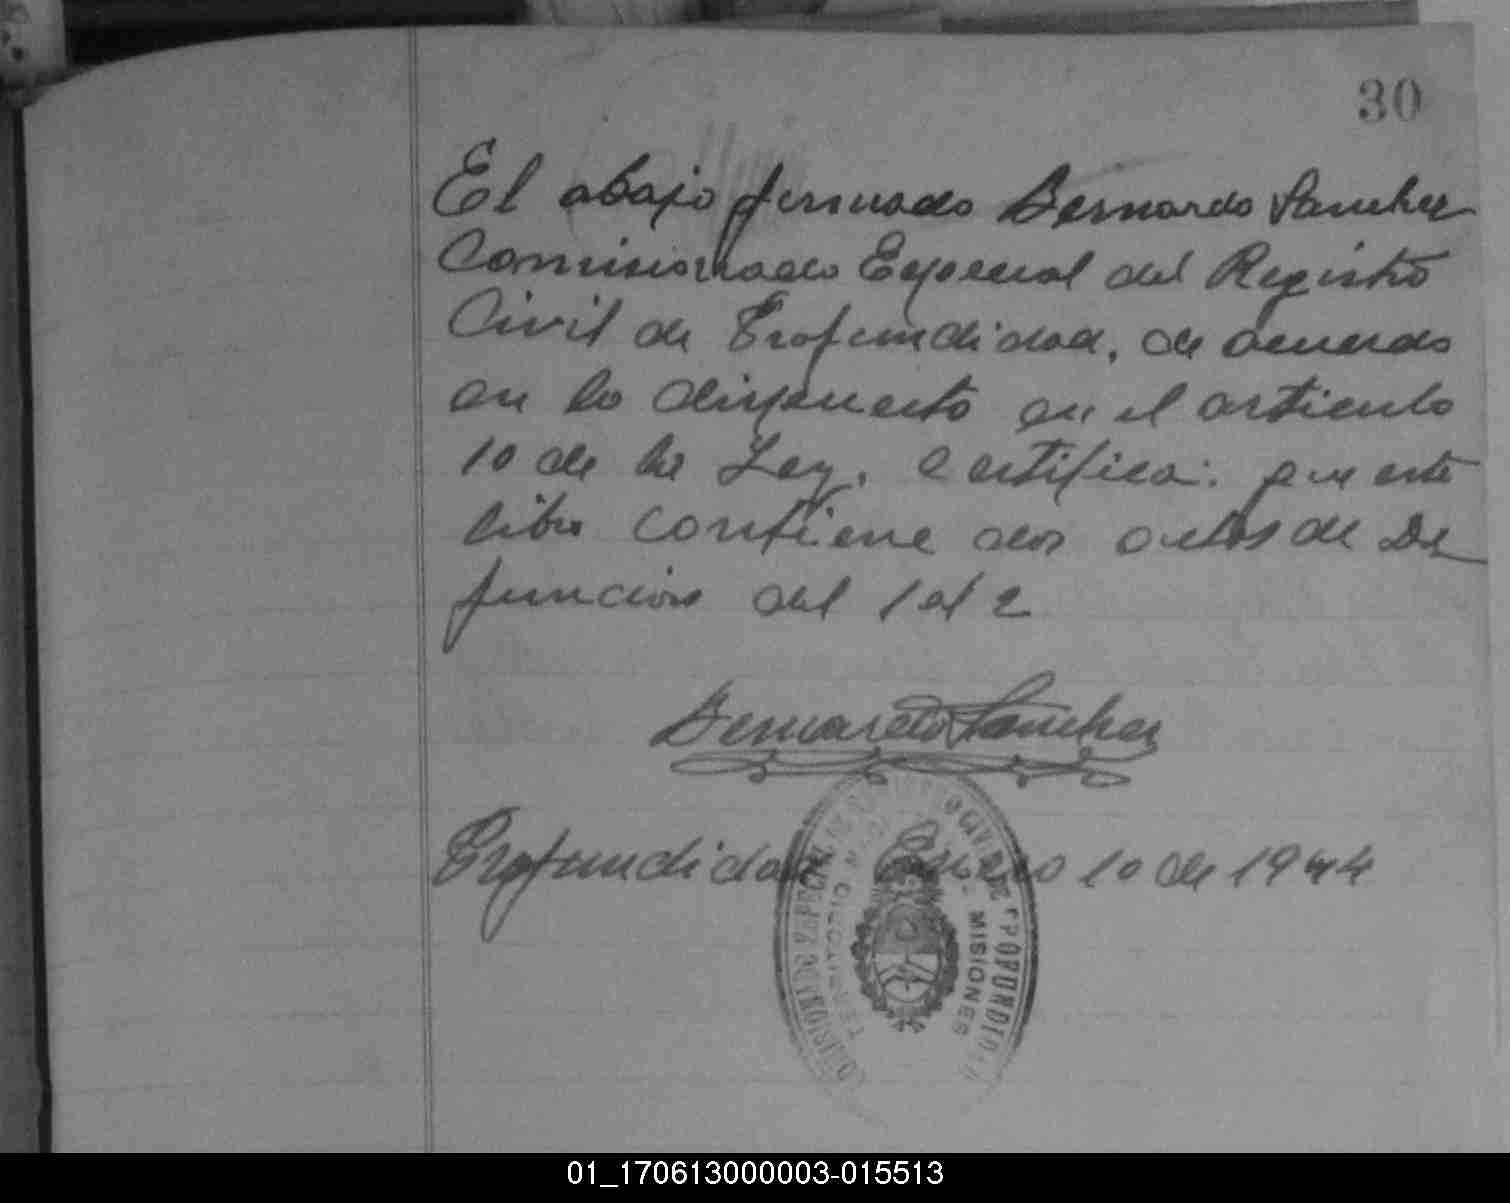 30
El abajo firmado Bernardo Sanchez
Comisionado Especial del Registro
Civil de Profundidad, de acuerdo
en lo dispuesto en el articulo
10 de la Ley. Certifica: que este
libro contiene dos actas de De
funcion del 1 al 2
Bernardo Sanchez
Profundidad Enero 10 de 1944
COMISIONADO ESPECIAL CIVIL DE PROFUNDIDAD
TERRITORIO MISIONES
01_170613000003-015513